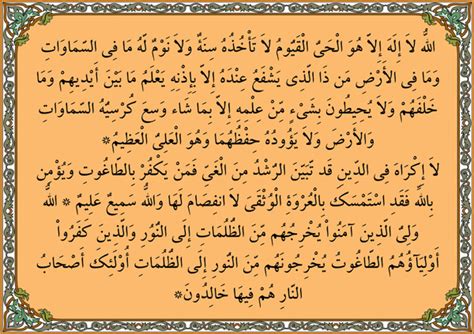 اللهُ لاَ إِلَهَ إِلاَّ هُوَ الْحَيُّ الْقَيُّومُ لاَ تَأْخُذُهُ سِنَةٌ وَلاَ نَوْمٌ لَهُ مَا فِى السَّمَاوَاتِ
وَمَا فِى الأَرْضِ مَن ذَا الَّذِى يَشْفَعُ عِنْدَهُ إِلاَّ بِإِذْنِهِ يَعْلَمُ مَا بَيْنَ أَيْدِيهِمْ وَمَا
خَلْفَهُمْ وَلاَ يُحِيطُونَ بِشَىْءٍ مِّنْ عِلْمِهِ إِلاَّ بِمَا شَاء وَسِعَ كُرْسِيُّهُ السَّمَاوَاتِ
وَالأَرْضَ وَلاَ يَؤُودُهُ حِفْظُهُمَا وَهُوَ الْعَلِىُّ الْعَظِيمُ۞
لاَ إِكْرَاهَ فِى الدِّينِ قَد تَّبَيَّنَ الرُّشْدُ مِنَ الْغَىِّ فَمَنْ يَكْفُرْ بِالطَّاغُوتِ وَيُؤْمِن
بِاللهِ فَقَدِ اسْتَمْسَكَ بِالْعُرْوَةِ الْوُثْقَىَ لاَ انفِصَامَ لَهَا وَاللهُ سَمِيعٌ عَلِيمٌ ۞ اللهُ
وَلِىُّ الَّذِينَ آمَنُواْ يُخْرِجُهُم مِّنَ الظُّلُمَاتِ إِلَى النُّوُرِ وَالَّذِينَ كَفَرُواْ
أَوْلِيَآؤُهُمُ الطَّاغُوتُ يُخْرِجُونَهُم مِّنَ النُّورِ إِلَى الظُّلُمَاتِ أُوْلَئِكَ أَصْحَابُ
النَّارِ هُمْ فِيهَا خَالِدُونَ۞